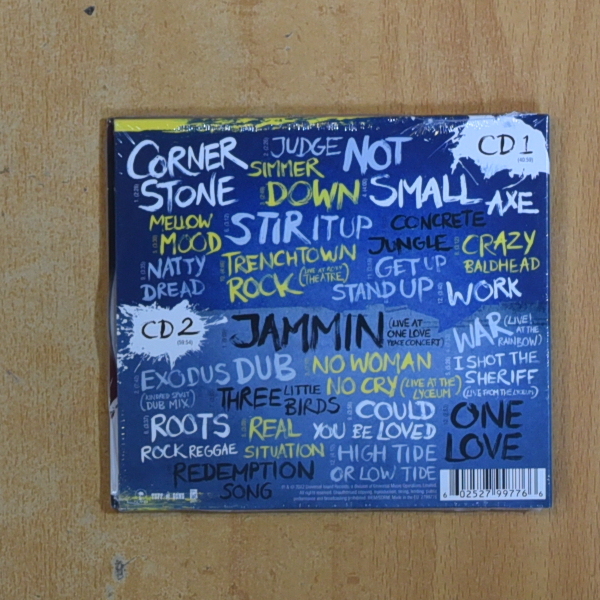 CORNER STONE
JUDGE NOT
CD 1
SIMMER DOWN
SMALL AXE
MELLOW MOOD
STIR IT UP
CONCRETE JUNGLE
CRAZY BALDHEAD
NATTY DREAD
TRENCHTOWN ROCK (LIVE AT ROXY THEATRE)
GET UP STAND UP
WORK
CD 2
JAMMIN (LIVE AT ONE LOVE PEACE CONCERT)
WAR (LIVE! AT THE RAINBOW)
EXODUS DUB (KINDRED SPIRIT DUB MIX)
NO WOMAN NO CRY (LIVE AT THE LYCEUM)
I SHOT THE SHERIFF (LIVE FROM THE LYCEUM)
THREE LITTLE BIRDS
ROOTS ROCK REGGAE
REAL SITUATION
COULD YOU BE LOVED
ONE LOVE
REDEMPTION SONG
HIGH TIDE OR LOW TIDE
6 02527 99776 6